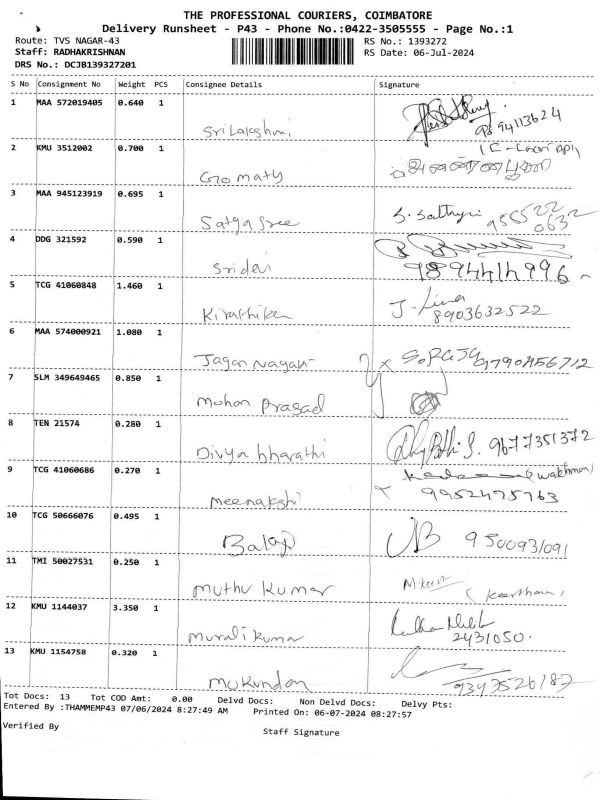 THE PROFESSIONAL COURIERS, COIMBATORE
Delivery Runsheet - P43 - Phone No.:0422-3505555 - Page No.:1
Route: TVS NAGAR-43 RS No.: 1393272
Staff: RADHAKRISHNAN RS Date: 06-Jul-2024
DRS No.: DCJB139327201
S No Consignment No Weight PCS Consignee Details Signature
1 MAA 572019405 0.640 1 Srilakshmi 9894113624
2 KMU 3512002 0.700 1 Gomathy
3 MAA 945123919 0.695 1 Satya Sree S. Sathya 955522
0632
4 DDG 321592 0.590 1 Sridevi
9894414996
5 TCG 41060848 1.460 1 Kirathika J. Lina
8903632522
6 MAA 574000921 1.080 1 Jagan Nayaki
7 SLM 349649465 0.850 1 Mohan Prasad
8 TEN 21574 0.280 1 Divya bharathi 9677351372
9 TCG 41060686 0.270 1 meenakshi (watchman)
9952475763
10 TCG 50666076 0.495 1 Balaji 9500931091
11 TMI 50027531 0.250 1 muthu kumar (keerthana)
12 KMU 1144037 3.350 1 murali kumar
2431050.
13 KMU 1154758 0.320 1 mukundan
9343526187
Tot Docs: 13 Tot COD Amt: 0.00 Delvd Docs: Non Delvd Docs: Delvy Pts:
Entered By :THAMMEMP43 07/06/2024 8:27:49 AM Printed On: 06-07-2024 08:27:57
Verified By Staff Signature